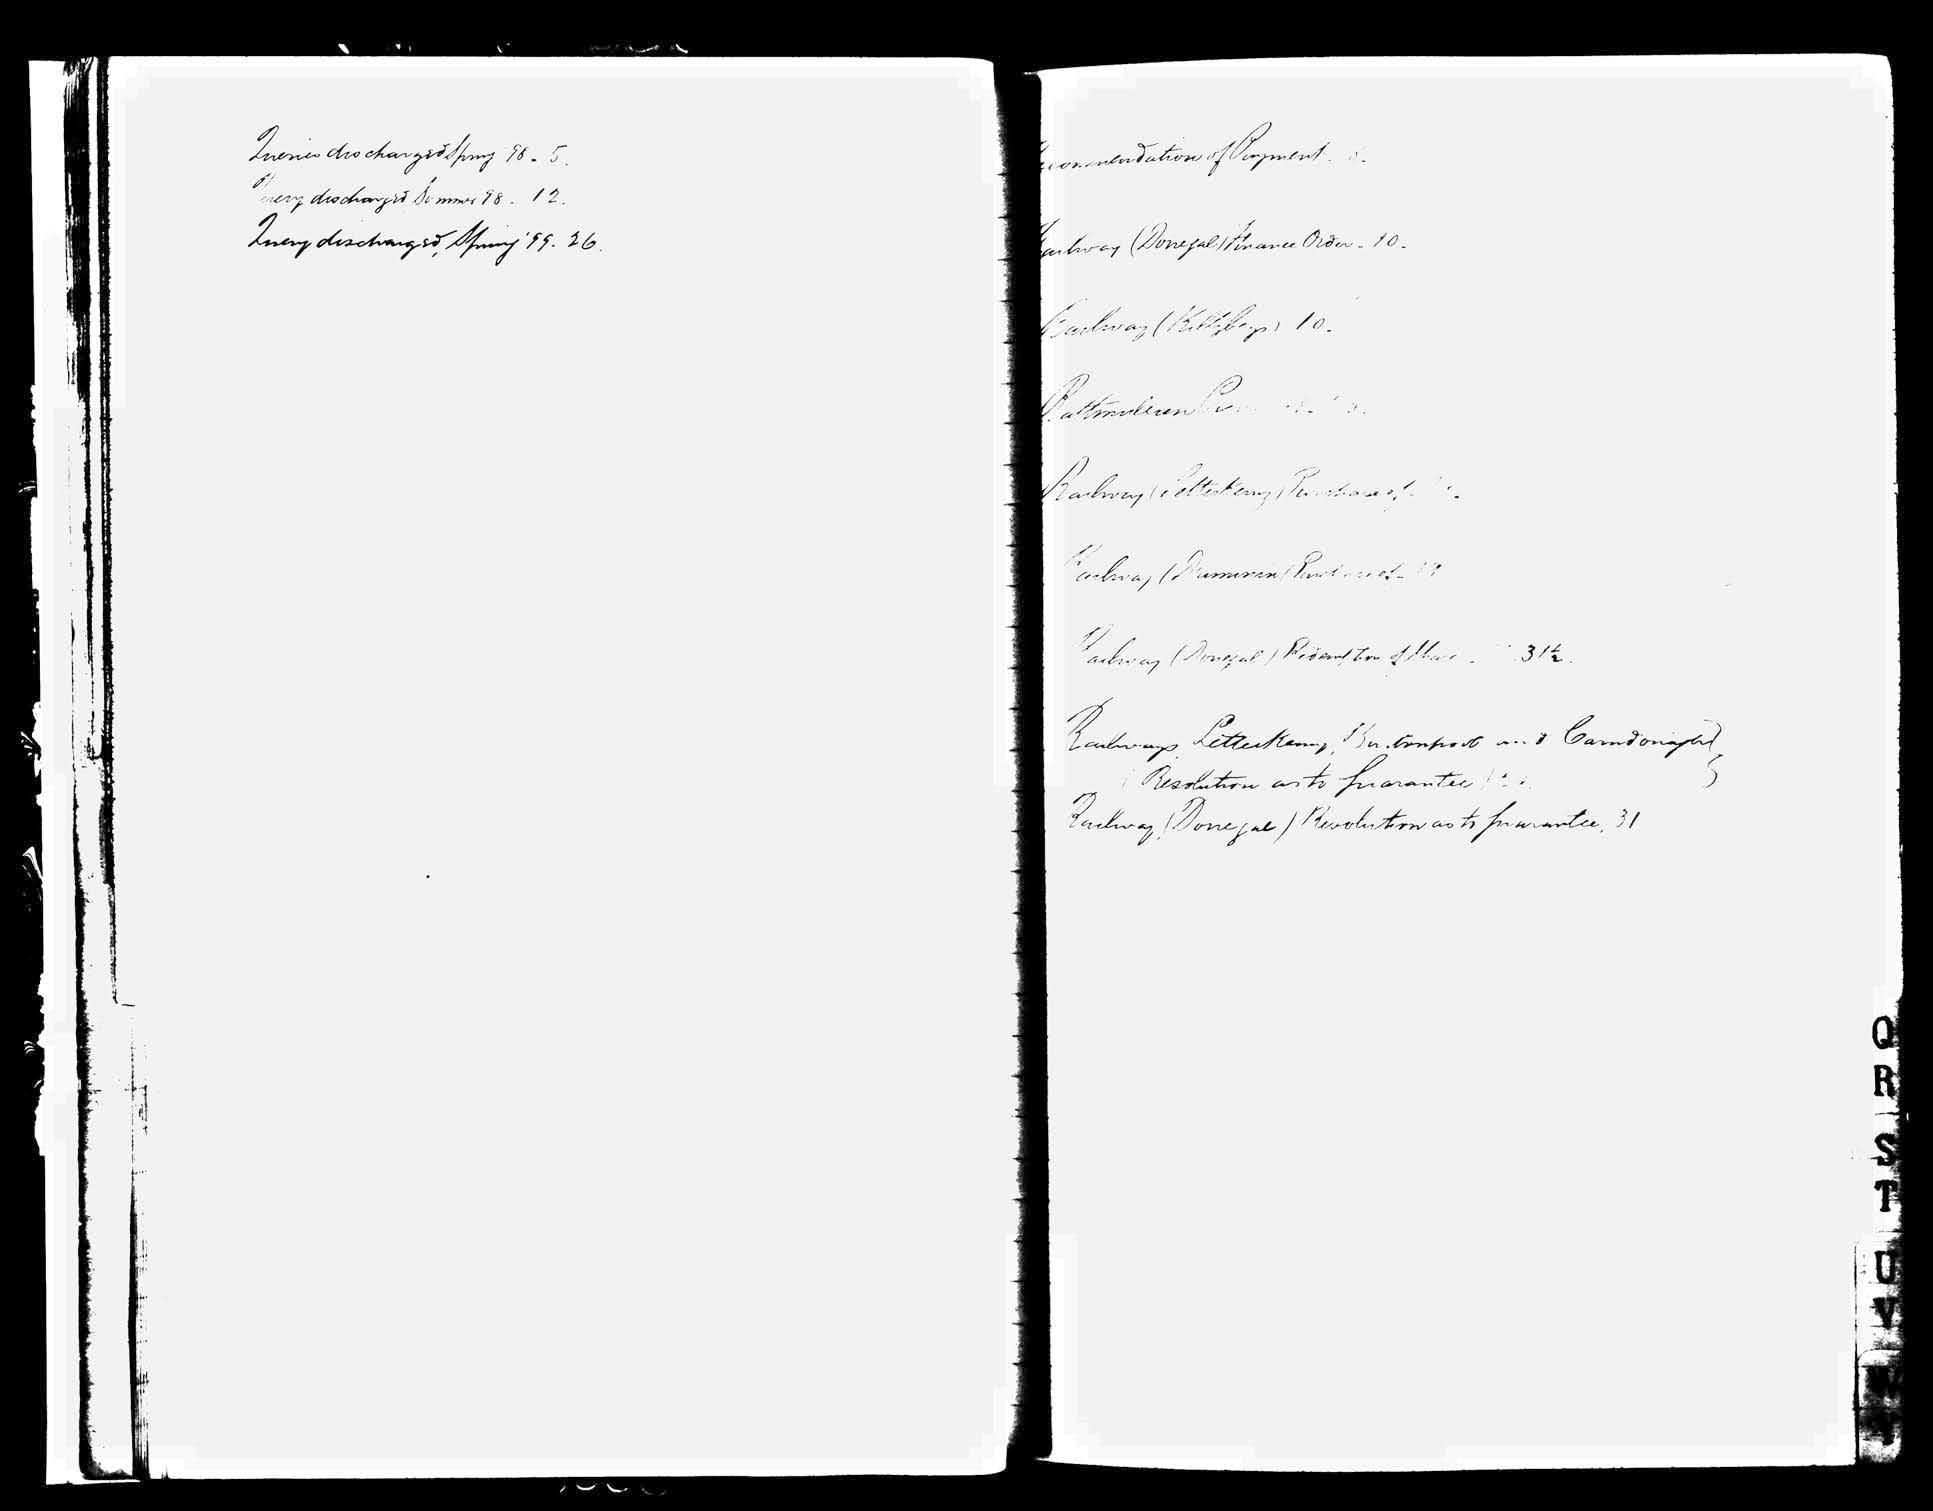 Queries discharged Spring 98 - 5.
Query discharged Summer 98 - 12.
Query discharged, Spring '99 - 26.
Recommendation of Payment.
Railway (Donegal) Finance Order - 10.
Railway (Killybegs) 10.
Rathmullen
Railway (Letterkenny) Purchase of -
Railway ( ) Purchase of -
Railway (Donegal) Redemption of - 31½.
Railways, Letterkenny, Burtonport and Carndonagh
(Resolution as to Guarantee)
Railway (Donegal) Resolution as to Guarantee, 31
Q
R
S
T
U
V